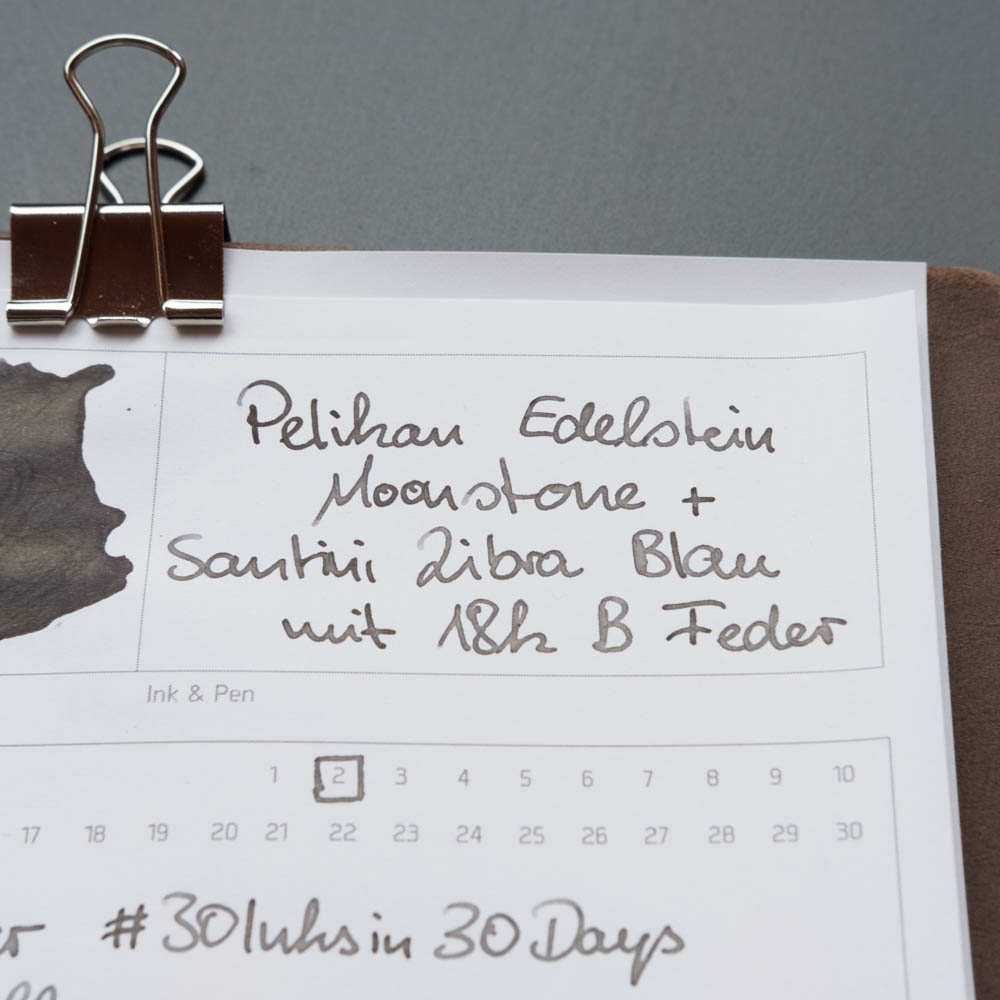 Pelikan Edelstein
Moonstone +
Santini Libra Blau
mit 18k B Feder
Ink & Pen
1 2 3 4 5 6 7 8 9 10
17 18 19 20 21 22 23 24 25 26 27 28 29 30
#30Inksin 30 Days